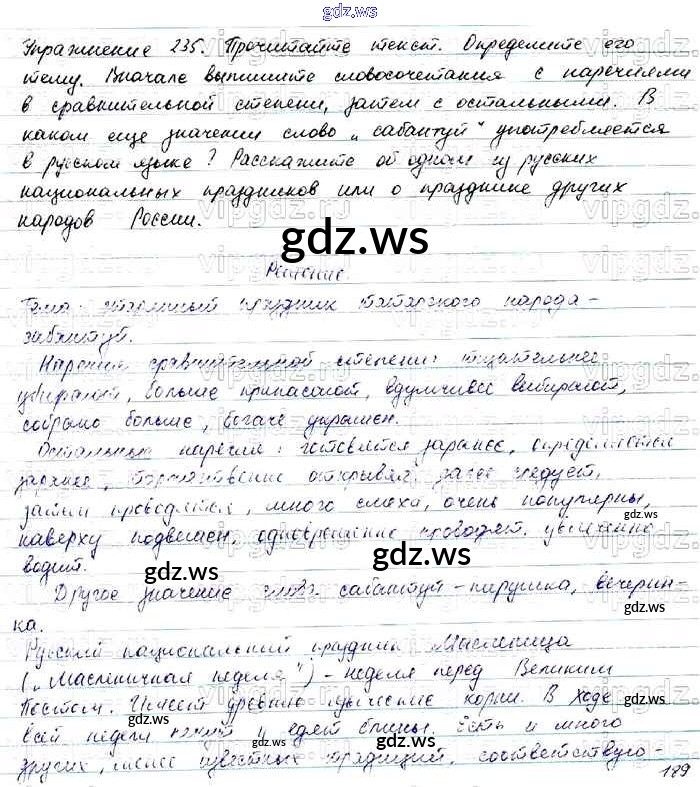 gdz.ws
Упражнение 235. Прочитайте текст. Определите его
тему. Вначале выпишите словосочетания с наречиями
в сравнительной степени, затем с остальными. В
каком еще значении слово "сабантуй" употребляется
в русском языке? Расскажите об одном из русских
национальных праздников или о празднике других
народов России.
gdz.ws
Решение.
Тема: старинный праздник татарского народа -
сабантуй.
Наречия сравнительной степени: тщательнее
убирают, больше припасают, вдумчивее выбирают,
собрано больше, богаче украшен.
Остальные наречия: готовятся заранее, определяется
заранее, торжественно открывал, далее следует,
затем проводятся, много смеха, очень популярны,
gdz.ws
наверху подвешен, одновременно проводят,
gdz.ws
водит.
gdz.ws
Другое значение слова сабантуй - пирушка, вечерин-
gdz.ws
ка.
Русский национальный праздник Масленица
("Масленичная неделя") - неделя перед Великим
Постом. Имеет древние языческие корни. В ходе
всей недели пекут и едят блины. Есть и много
gdz.ws
других, менее известных традиций, соответствую-
189